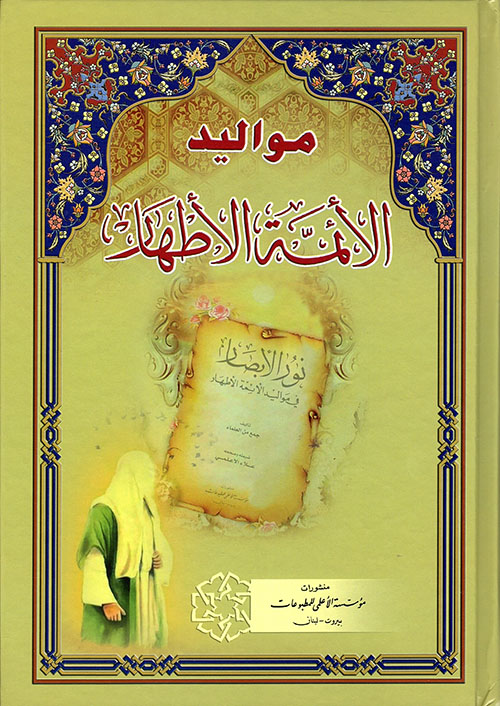 مواليد
الأئمّة الأطهار
نور الأبصار
في مواليد الأئمة الأطهار
تأليف
جمع من العلماء
ضبطه وصححه
علاء الاعلمي
منشورات
مؤسسة الأعلمي للمطبوعات
بيروت - لبنان